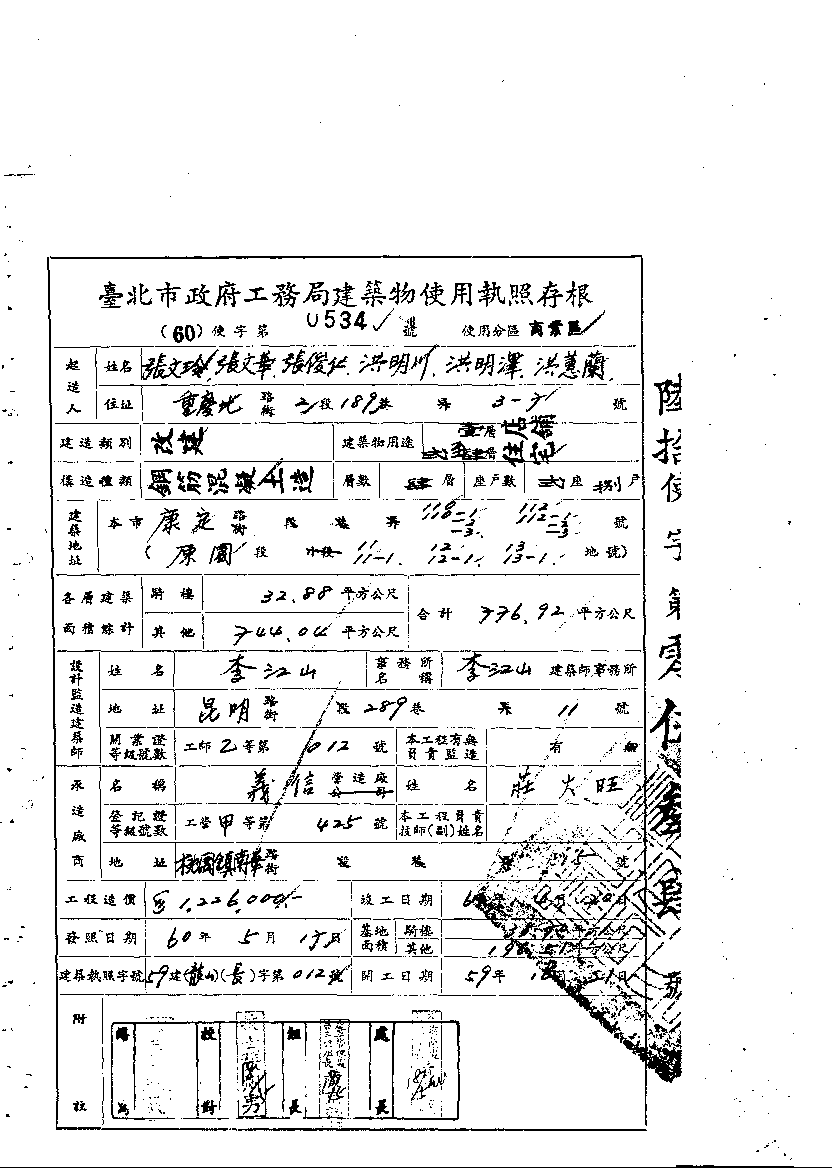 臺北市政府工務局建築物使用執照存根
(60)使字第 0534 號 使用分區 商業區
起造人 姓名 張文玲 張文華 張俊仁 洪明川 洪明澤 洪蕙蘭
住址 重慶北 路街 2段 189巷 弄 號
建造類別 改建 建築物用途 壹層店舖 住宅
構造種類 鋼筋混凝土造 層數 肆層 座戶數 弍座 捌戶
建築地址 本市 康定 路街 段 巷 弄 號
(康園 段 小段 11 11-1. 12 12-1. 13 13-1. 地號)
各層建築面積總計 騎樓 32.88 平方公尺 合計 776.92 平方公尺
其他 744.04 平方公尺
設計監造建築師 姓名 李江山 事務所名稱 李江山 建築師事務所
地址 昆明 路街 段 289巷 弄 11 號
開業證等級號數 工師乙等第 012 號 本工程有無負責監造 有 無
承造廠商 名稱 義信 營造廠公司 姓名 莊大旺
登記證等級號數 工營甲等第 425 號 本工程負責技師(副)姓名
地址 桃園鎮南華 路街 巷 號
工程造價 1,226,000 竣工日期
發照日期 60年 5月 日 基地面積 騎樓 平方公尺
其他 平方公尺
建築執照字號 59建(龍山)(長)字第012號 開工日期 59年 月 日
附註 繕寫 校對 組長 處長
陸拾使字第零伍叁肆號